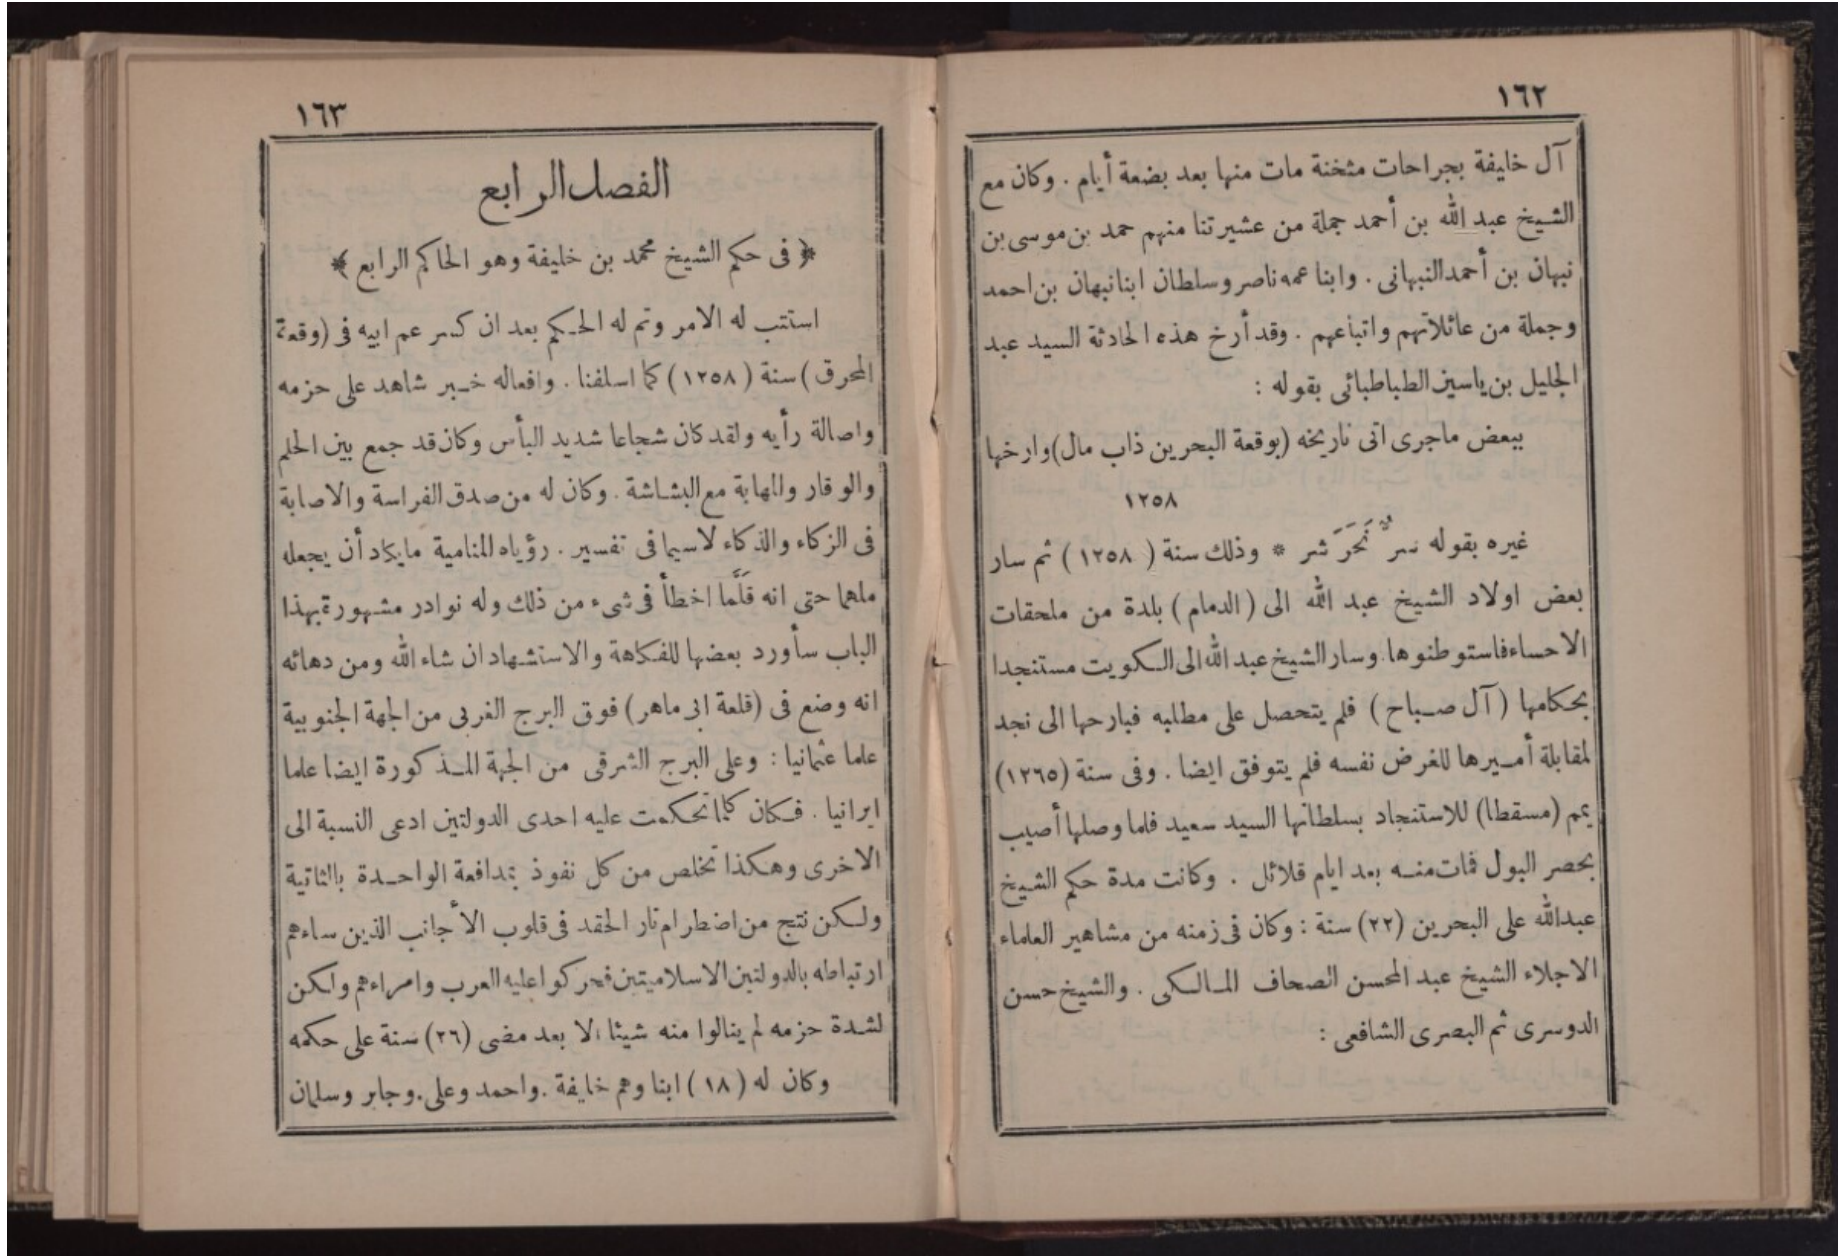 ١٦٢
آل خليفة بجراحات مثخنة مات منها بعد بضعة أيام . وكان مع
الشيخ عبد الله بن أحمد جملة من عشيرتنا منهم حمد بن موسى بن
نبهان بن أحمد النبهانى . وابنا عمه ناصر وسلطان ابنا نبهان بن احمد
وجملة من عائلاتهم واتباعهم . وقد أرخ هذه الحادثة السيد عبد
الجليل بن ياسين الطباطبائى بقوله :
ببعض ماجرى اتى تاريخه (بوقعة البحرين ذاب مال) وارخها
١٢٥٨
غيره بقوله نَحَرَ شر * وذلك سنة ( ١٢٥٨ ) ثم سار
بعض اولاد الشيخ عبد الله الى ( الدمام ) بلدة من ملحقات
الاحساء فاستوطنوها. وسار الشيخ عبد الله الى الكويت مستنجدا
بحكامها ( آل صباح ) فلم يتحصل على مطلبه فبارحها الى نجد
لمقابلة أميرها للغرض نفسه فلم يتوفق ايضا . وفى سنة (١٢٦٥)
يمم (مسقطا) للاستنجاد بسلطانها السيد سعيد فلما وصلها أصيب
بحصر البول فمات منه بعد ايام قلائل . وكانت مدة حكم الشيخ
عبدالله على البحرين (٢٢) سنة : وكان فى زمنه من مشاهير العلماء
الاجلاء الشيخ عبد المحسن الصحاف المالكى . والشيخ حسن
الدوسرى ثم البصرى الشافعى :
١٦٣
الفصل الرابع
﴿ فى حكم الشيخ محمد بن خليفة وهو الحاكم الرابع ﴾
استتب له الامر وتم له الحكم بعد ان كسر عم ابيه فى (وقعة
المحرق) سنة ( ١٢٥٨ ) كما اسلفنا . وافعاله خير شاهد على حزمه
واصالة رأيه ولقد كان شجاعا شديد البأس وكان قد جمع بين الحلم
والوقار والمهابة مع البشاشة . وكان له من صدق الفراسة والاصابة
فى الزكاء والذكاء لاسيما فى تفسير . رؤياه المنامية مايكاد أن يجعله
ملهما حتى انه قَلَّما اخطأ فى شىء من ذلك وله نوادر مشهورة بهذا
الباب سأورد بعضها للفكاهة والاستشهاد ان شاء الله ومن دهائه
انه وضع فى (قلعة ابى ماهر) فوق البرج الغربى من الجهة الجنوبية
علما عثمانيا : وعلى البرج الشرقى من الجهة المذكورة ايضا علما
ايرانيا . فكان كلما تحكمت عليه احدى الدولتين ادعى النسبة الى
الاخرى وهكذا تخلص من كل نفوذ بمدافعة الواحدة بالثانية
ولكن نتج من اضطرام نار الحقد فى قلوب الأجانب الذين ساءهم
ارتباطه بالدولتين الاسلاميتين فحركوا عليه العرب وامراءهم ولكن
لشدة حزمه لم ينالوا منه شيئا الا بعد مضى (٢٦) سنة على حكمه
وكان له ( ١٨ ) ابنا وهم خليفة . واحمد وعلى . وجابر وسلمان